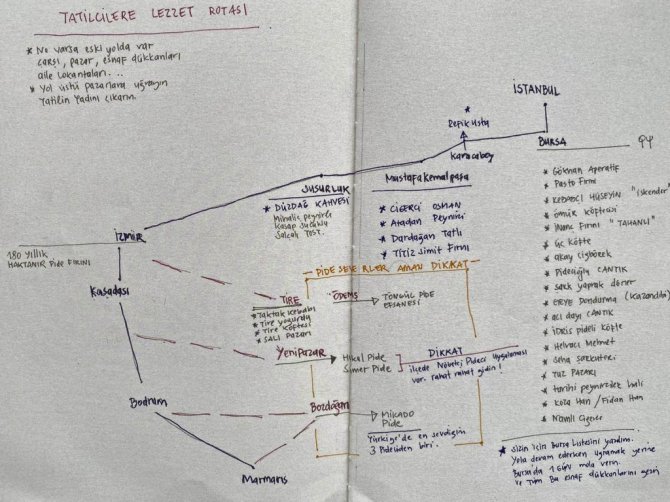 TATİLCİLERE LEZZET ROTASI
* Ne varsa eski yolda var
çarşı, pazar, esnaf dükkanları
aile lokantaları...
* Yol üstü pazarlara uğrayın
Tatilin Tadını çıkarın.
İSTANBUL
*
Refik Usta
Karacabey
BURSA
Mustafa Kemal paşa
* CİĞERCİ OSMAN
* Atadan Peynirci
* Dardağan Tatlı
* TİTİZ Simit Fırını
SUSURLUK
* DÜZDAĞ KAHVESİ
Mihaliç peynirli
Kasap sucuklu
Salçalı TOST.
İZMİR
180 yıllık
HAKTANIR Pide FIRINI
Kuşadası
Bodrum
Marmaris
PİDE SEVERLER AMAN DİKKAT
TİRE
* Taktak Kebabı
* Tire yoğurdu
* Tire Köftesi
* SALI Pazarı
ÖDEMİŞ
TONGÜL PİDE
EFSANESİ
Yenipazar
Hilal Pide
Sümer Pide
DİKKAT
ilçede Nöbetçi Pideci Uygulaması
var. rahat rahat gidin!
Bozdoğan
MİKADO
Pide
Türkiye'de en sevdiğim
3 Pideciden biri.
* Gökhan Aperatif
* Pasto Fırın
* KEBABCI HÜSEYİN "iskender"
* Ömür Köftecisi
* İnanç Fırını "TAHANLI"
* Üç Köfte
* akay Çiğbörek
* Pidecioğlu CANTIK
* yaprak döner
* Dondurma (Kazandibi)
* acı dayı CANTIK
* İDRİS pideli köfte
* Helvacı Mehmet
* Seha şarküteri
* TUZ PAZARI
* tarihi peynirciler hali
* Koza Han / Fidan Han
* Namlı Ciğerci
* Sizin için Bursa Listesini yazdım.
Yola devam ederken uğramak yerine
Bursa'da 1 GÜN mola verin.
ve Tüm Bu esnaf dükkanlarını gezin